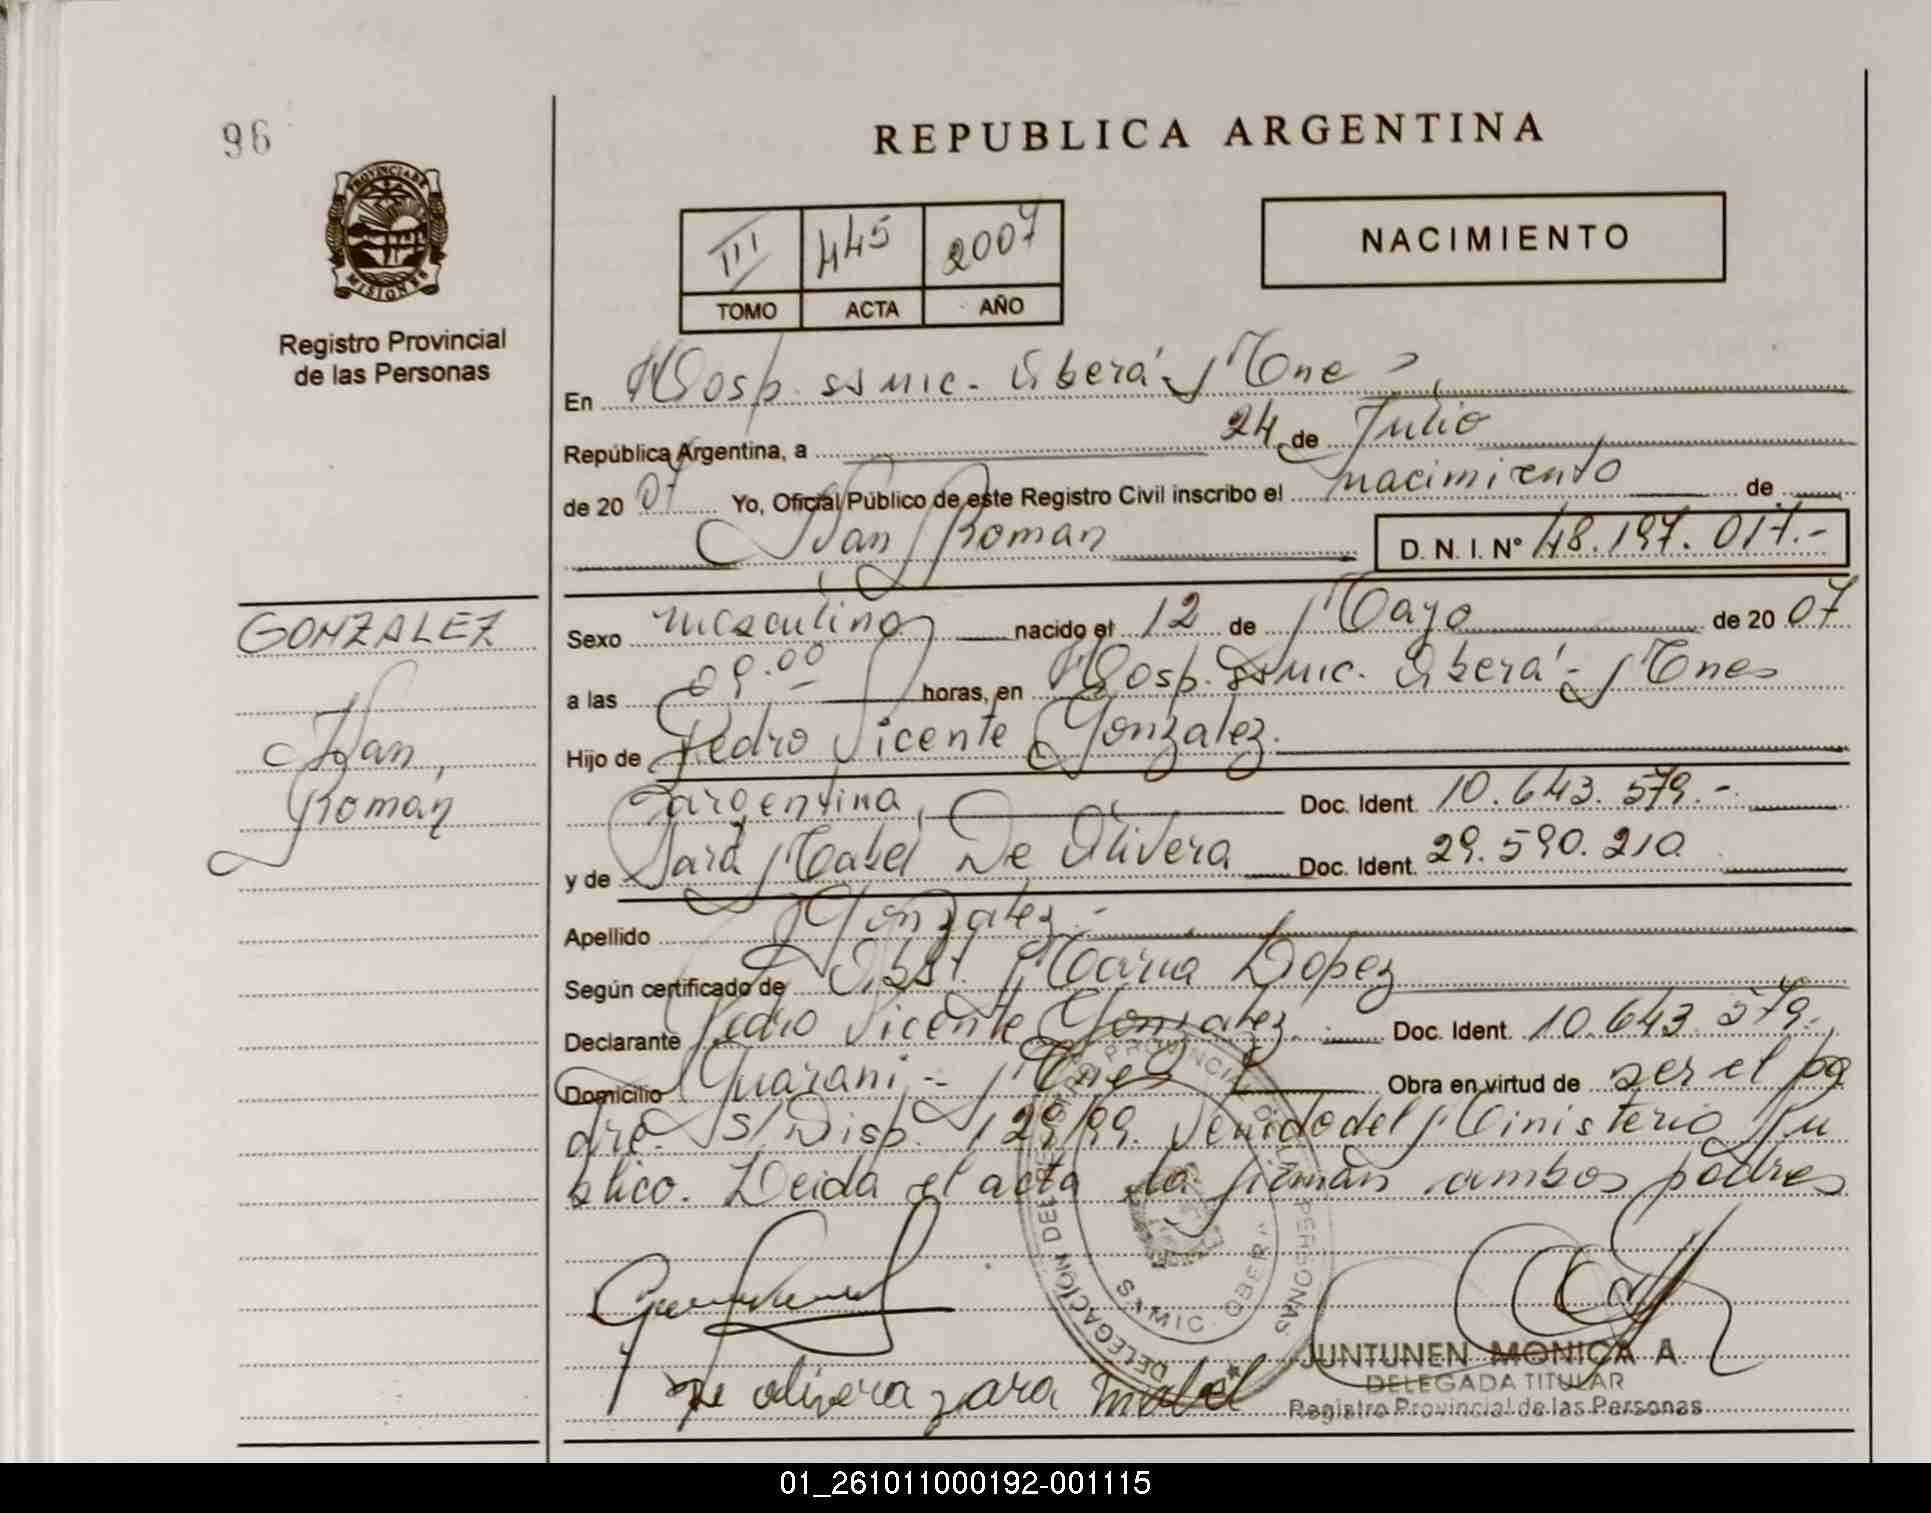 96
PROVINCIA DE
MISIONES
Registro Provincial
de las Personas
GONZALEZ
Ivan,
Roman
REPUBLICA ARGENTINA
III 445 2007
TOMO ACTA AÑO
NACIMIENTO
En Hosp. SAMIC. Oberá - Mnes,
República Argentina, a 24 de Julio
de 20 07 Yo, Oficial Público de este Registro Civil inscribo el nacimiento de
Ivan Roman D. N. I. N° 48.197.017.-
Sexo masculino nacido el 12 de Mayo de 20 07
a las 09.00 horas, en Hosp. SAMIC. Oberá - Mnes
Hijo de Pedro Vicente Gonzalez.
argentina, Doc. Ident. 10.643.579.-
y de Sara Mabel De Olivera Doc. Ident. 29.590.210
Apellido Gonzalez.-
Según certificado de Obst. Maria Lopez
Declarante Pedro Vicente Gonzalez. Doc. Ident. 10.643.579.-
Domicilio Guarani - Mnes Obra en virtud de ser el pa
dre. S/Disp. 129/99. del Ministerio Pu
blico. Leida el acta la firman ambos padres
De olivera zara mabel
S.A.MIC. OBERA
JUNTUNEN MONICA A.
DELEGADA TITULAR
Registro Provincial de las Personas
01_261011000192-001115